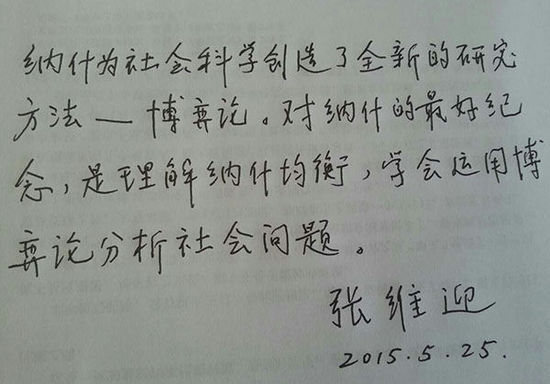 纳什为社会科学创造了全新的研究
方法—博弈论。对纳什的最好纪
念，是理解纳什均衡，学会运用博
弈论分析社会问题。
张维迎
2015.5.25.